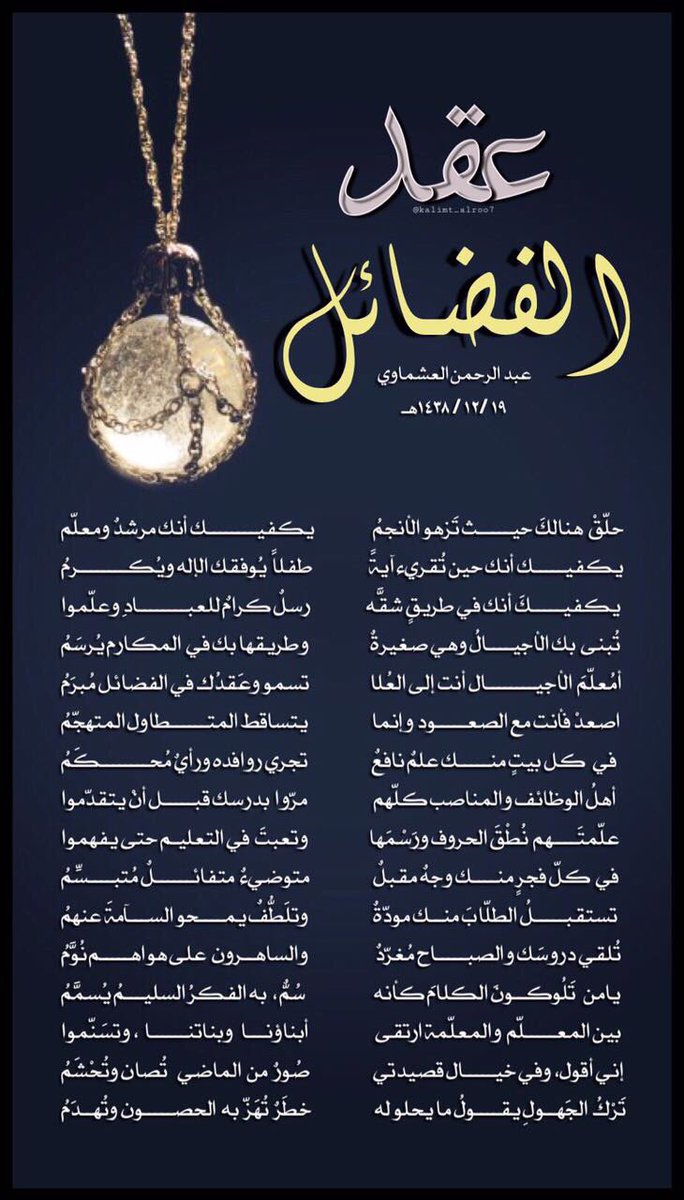 عقد
@kalimt_alroo7
الفضائل
عبد الرحمن العشماوي
١٤٣٨/١٢/١٩هـ
حلّقْ هنالكَ حيث تَزهو الأنجمُ يكفيك أنك مرشدٌ ومعلّم
يكفيك أنك حين تُقريء آيةً طفلاً يُوفقك الإله ويُكرمُ
يكفيكَ أنك في طريقٍ شقَّه رسلٌ كرامٌ للعبادِ وعلّموا
تُبنى بك الأجيالُ وهي صغيرةٌ وطريقها بك في المكارم يُرسَمُ
أمُعلّمَ الأجيال أنت إلى العُلا تسمو وعَقدُك في الفضائل مُبرَمُ
اصعدْ فأنت مع الصعود وإنما يتساقط المتطاول المتهجّمُ
في كل بيتٍ منك علمٌ نافعٌ تجري روافده ورأيٌ مُحكَمُ
أهلُ الوظائف والمناصب كلّهم مرّوا بدرسك قبل أنْ يتقدّموا
علّمتَهم نُطْقَ الحروف ورَسْمَها وتعبتَ في التعليم حتى يفهموا
في كلّ فجرٍ منك وجهٌ مقبلٌ متوضيءٌ متفائلٌ مُتبسِّمُ
تستقبلُ الطلّابَ منك مودّةٌ وتلَطُّفٌ يمحو السآمةَ عنهمُ
تُلقي دروسَك والصباح مُغرّدٌ والساهرون على هواهم نُوَّمُ
يامن تَلُوكونَ الكلامَ كأنه سُمٌّ، به الفكرُ السليمُ يُسمَّمُ
بين المعلّم والمعلّمة ارتقى أبناؤنا وبناتنا ، وتسَنّموا
إني أقول، وفي خيال قصيدتي صُورٌ من الماضي تُصان وتُحْشَمُ
تَرْكُ الجَهولِ يقولُ ما يحلو له خطَرٌ تُهَزّ به الحصون وتُهدَمُ